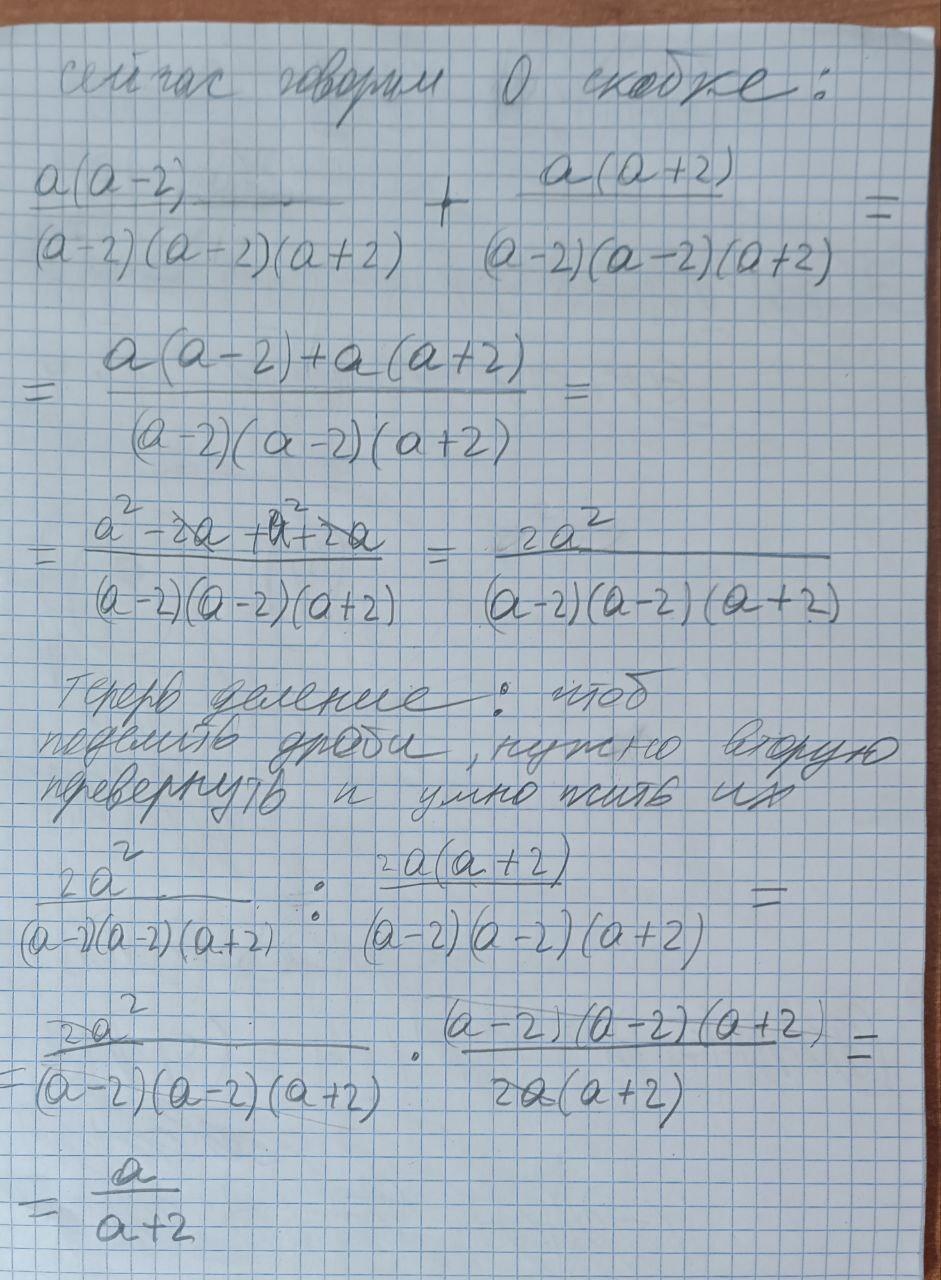 сейчас говорим о скобке:
a(a-2) / (a-2)(a-2)(a+2) + a(a+2) / (a-2)(a-2)(a+2) =
= a(a-2)+a(a+2) / (a-2)(a-2)(a+2) =
= a²-2a+a²+2a / (a-2)(a-2)(a+2) = 2a² / (a-2)(a-2)(a+2)
теперь деление: чтоб
поделить дроби, нужно вторую
перевернуть и умножить их
2a² / (a-2)(a-2)(a+2) : 2a(a+2) / (a-2)(a-2)(a+2) =
= 2a² / (a-2)(a-2)(a+2) · (a-2)(a-2)(a+2) / 2a(a+2) =
= a / a+2